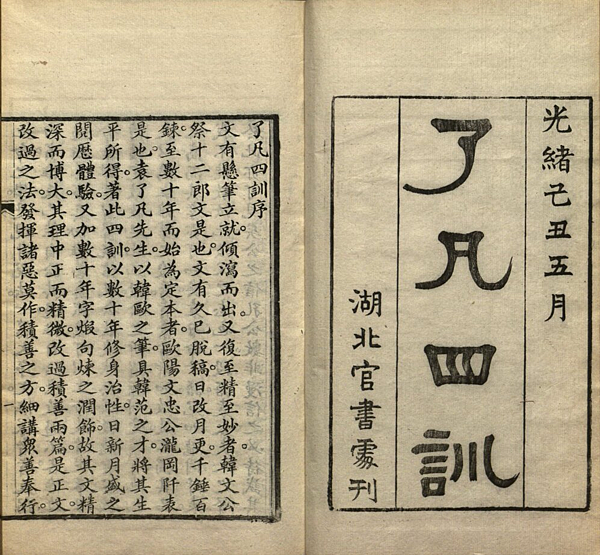 光緒己丑五月
了凡四訓
湖北官書處刊
了凡四訓序
文有懸筆立就傾瀉而出又復至精至妙者韓文公
祭十二郎文是也文有久已脫稿日改月更千錘百
鍊至數十年而始為定本者歐陽文忠公瀧岡阡表
是也袁了凡先生以韓歐之筆具韓范之才將其生
平所得著此四訓以數十年修身治性日新月盛之
閱歷體驗又加數十年字煆句煉之潤飾故其文精
深而博大其理中正而精微改過積善兩篇是正文
改過之法發揮諸惡莫作積善之方細講眾善奉行